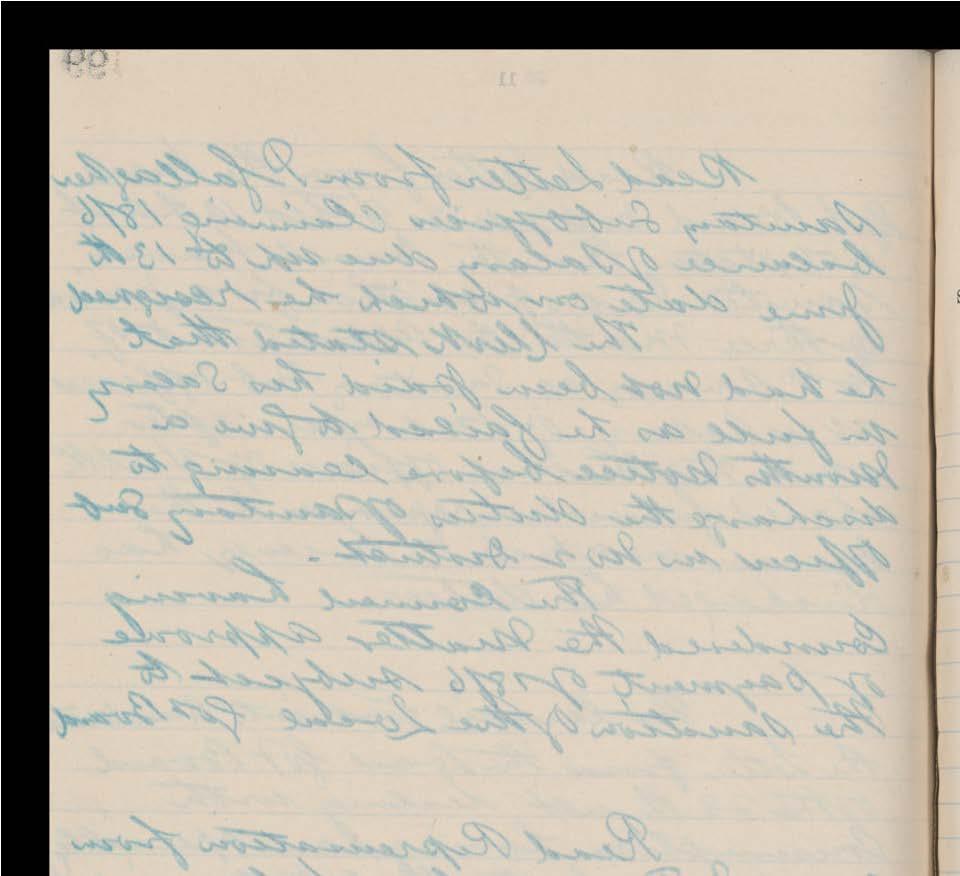 99
11
Read Letter from P Gallagher
Sanitary Subofficer Claiming 18/6
balance of Salary due up to 13th
June date on which he resigned
The Clerk stated that
he had not been paid his Salary
in full as he failed to give a
months notice before leaving to
discharge the duties of Sanitary Sub
Officer in No 2 District -
The Council having
Considered the matter approve
of payment of 18/6 subject to
the sanction of the Local Govt Board
Read Representation from